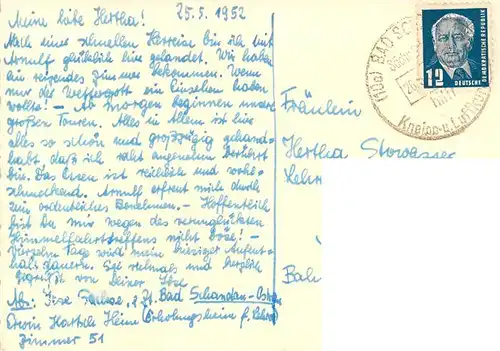 Meine liebe Hertha! 25.5.1952
Nach einer schnellen Herreise bin ich mit
Arnulf glücklich hier gelandet. Wir haben
ein reizendes Zimmer bekommen. Wenn
nur der Wettergott ein Einsehen haben
wollte! - Ab morgen beginnen unsere
großen Touren. Alles in Allem ist hier
alles so schön und großzügig gehand-
habt, daß ich sehr angenehm berührt
bin. Das Essen ist reichlich und wohl-
schmeckend. Arnulf erfreut mich durch
ein ordentliches Benehmen. - Hoffentlich
bist Du mir wegen des verunglückten
Himmelfahrtstreffens nicht böse! -
Vierzehn Tage wird mein hiesiger Aufent-
halt dauern. Sei vielmals und herzlich
gegrüßt von Deiner Ilse
Abs: Ilse z. Zt. Bad Schandau-Ostrau
Erwin Hartsch Heim (Erholungsheim f. Lehrer)
Zimmer 51
Fräulein
Hertha Stowasser
Lehr
Bah
(10a) BAD SC
Kneipp- u. Luftku
12
DEUTSCHE DEMOKRATISCHE REPUBLIK